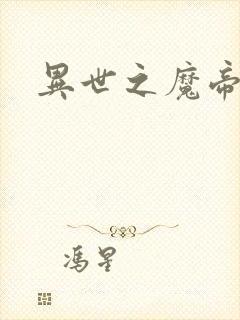 異世之魔帝
馮星